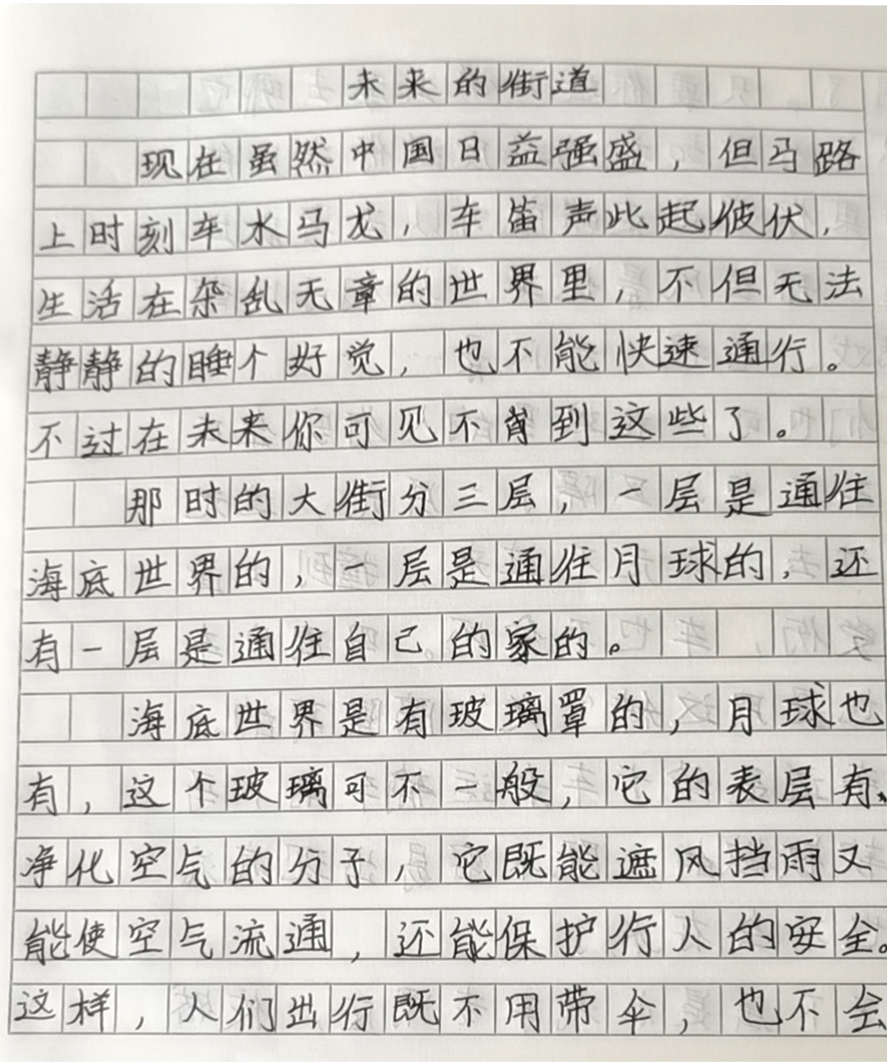 未来的街道
现在虽然中国日益强盛，但马路
上时刻车水马龙，车笛声此起彼伏，
生活在杂乱无章的世界里，不但无法
静静的睡个好觉，也不能快速通行。
不过在未来你可见不肖到这些了。
那时的大街分三层，一层是通往
海底世界的，一层是通往月球的，还
有一层是通往自己的家的。
海底世界是有玻璃罩的，月球也
有，这个玻璃可不一般，它的表层有、
净化空气的分子，它既能遮风挡雨又
能使空气流通，还能保护行人的安全。
这样，人们出行既不用带伞，也不会